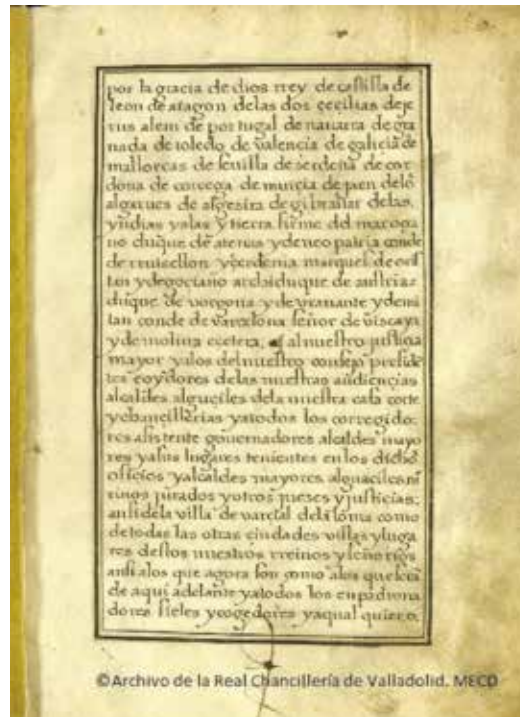 por la gracia de dios rrey de castilla de
leon de aragon delas dos ceçilias deje
rus alem de portugal de nauarra de gra
nada de toledo de valencia de galicia de
mallorcas de seuilla de serdeña de cor
doua de corcega de murcia de jaen delos
algarues de algesira de gibraltar delas
yndias yslas y tierra firme del mar oçea
no duque de atenas y de neopatria conde
de rruisellon y çerdenia marques de oris
tan y de goçiano archiduque de austria
duque de borgoña y de brauante y de mi
lan conde de varcelona señor de viscaya
y de molina ecetera. al nuestro justiçia
mayor yalos del nuestro consejo preside
tes e oydores delas nuestras audiençias
alcaldes alguaciles dela nuestra casa corte
y chancillerias yatodos los corregido:
res asistente gouernadores alcaldes mayo
res yasus lugares tenientes en los dichos
oficios yalcaldes mayores alguaciles m
rinos jurados yotros jueses y justicias:
ansi dela villa de varcial dela loma como
de todas las otras ciudades villas y luga
res destos nuestros rreinos y señorios
ansi alos que agora son como alos que seran
de aqui adelante yatodos los enpadrona
dores fieles ycogedores yaqual quiero
©Archivo de la Real Chancillería de Valladolid. MECD